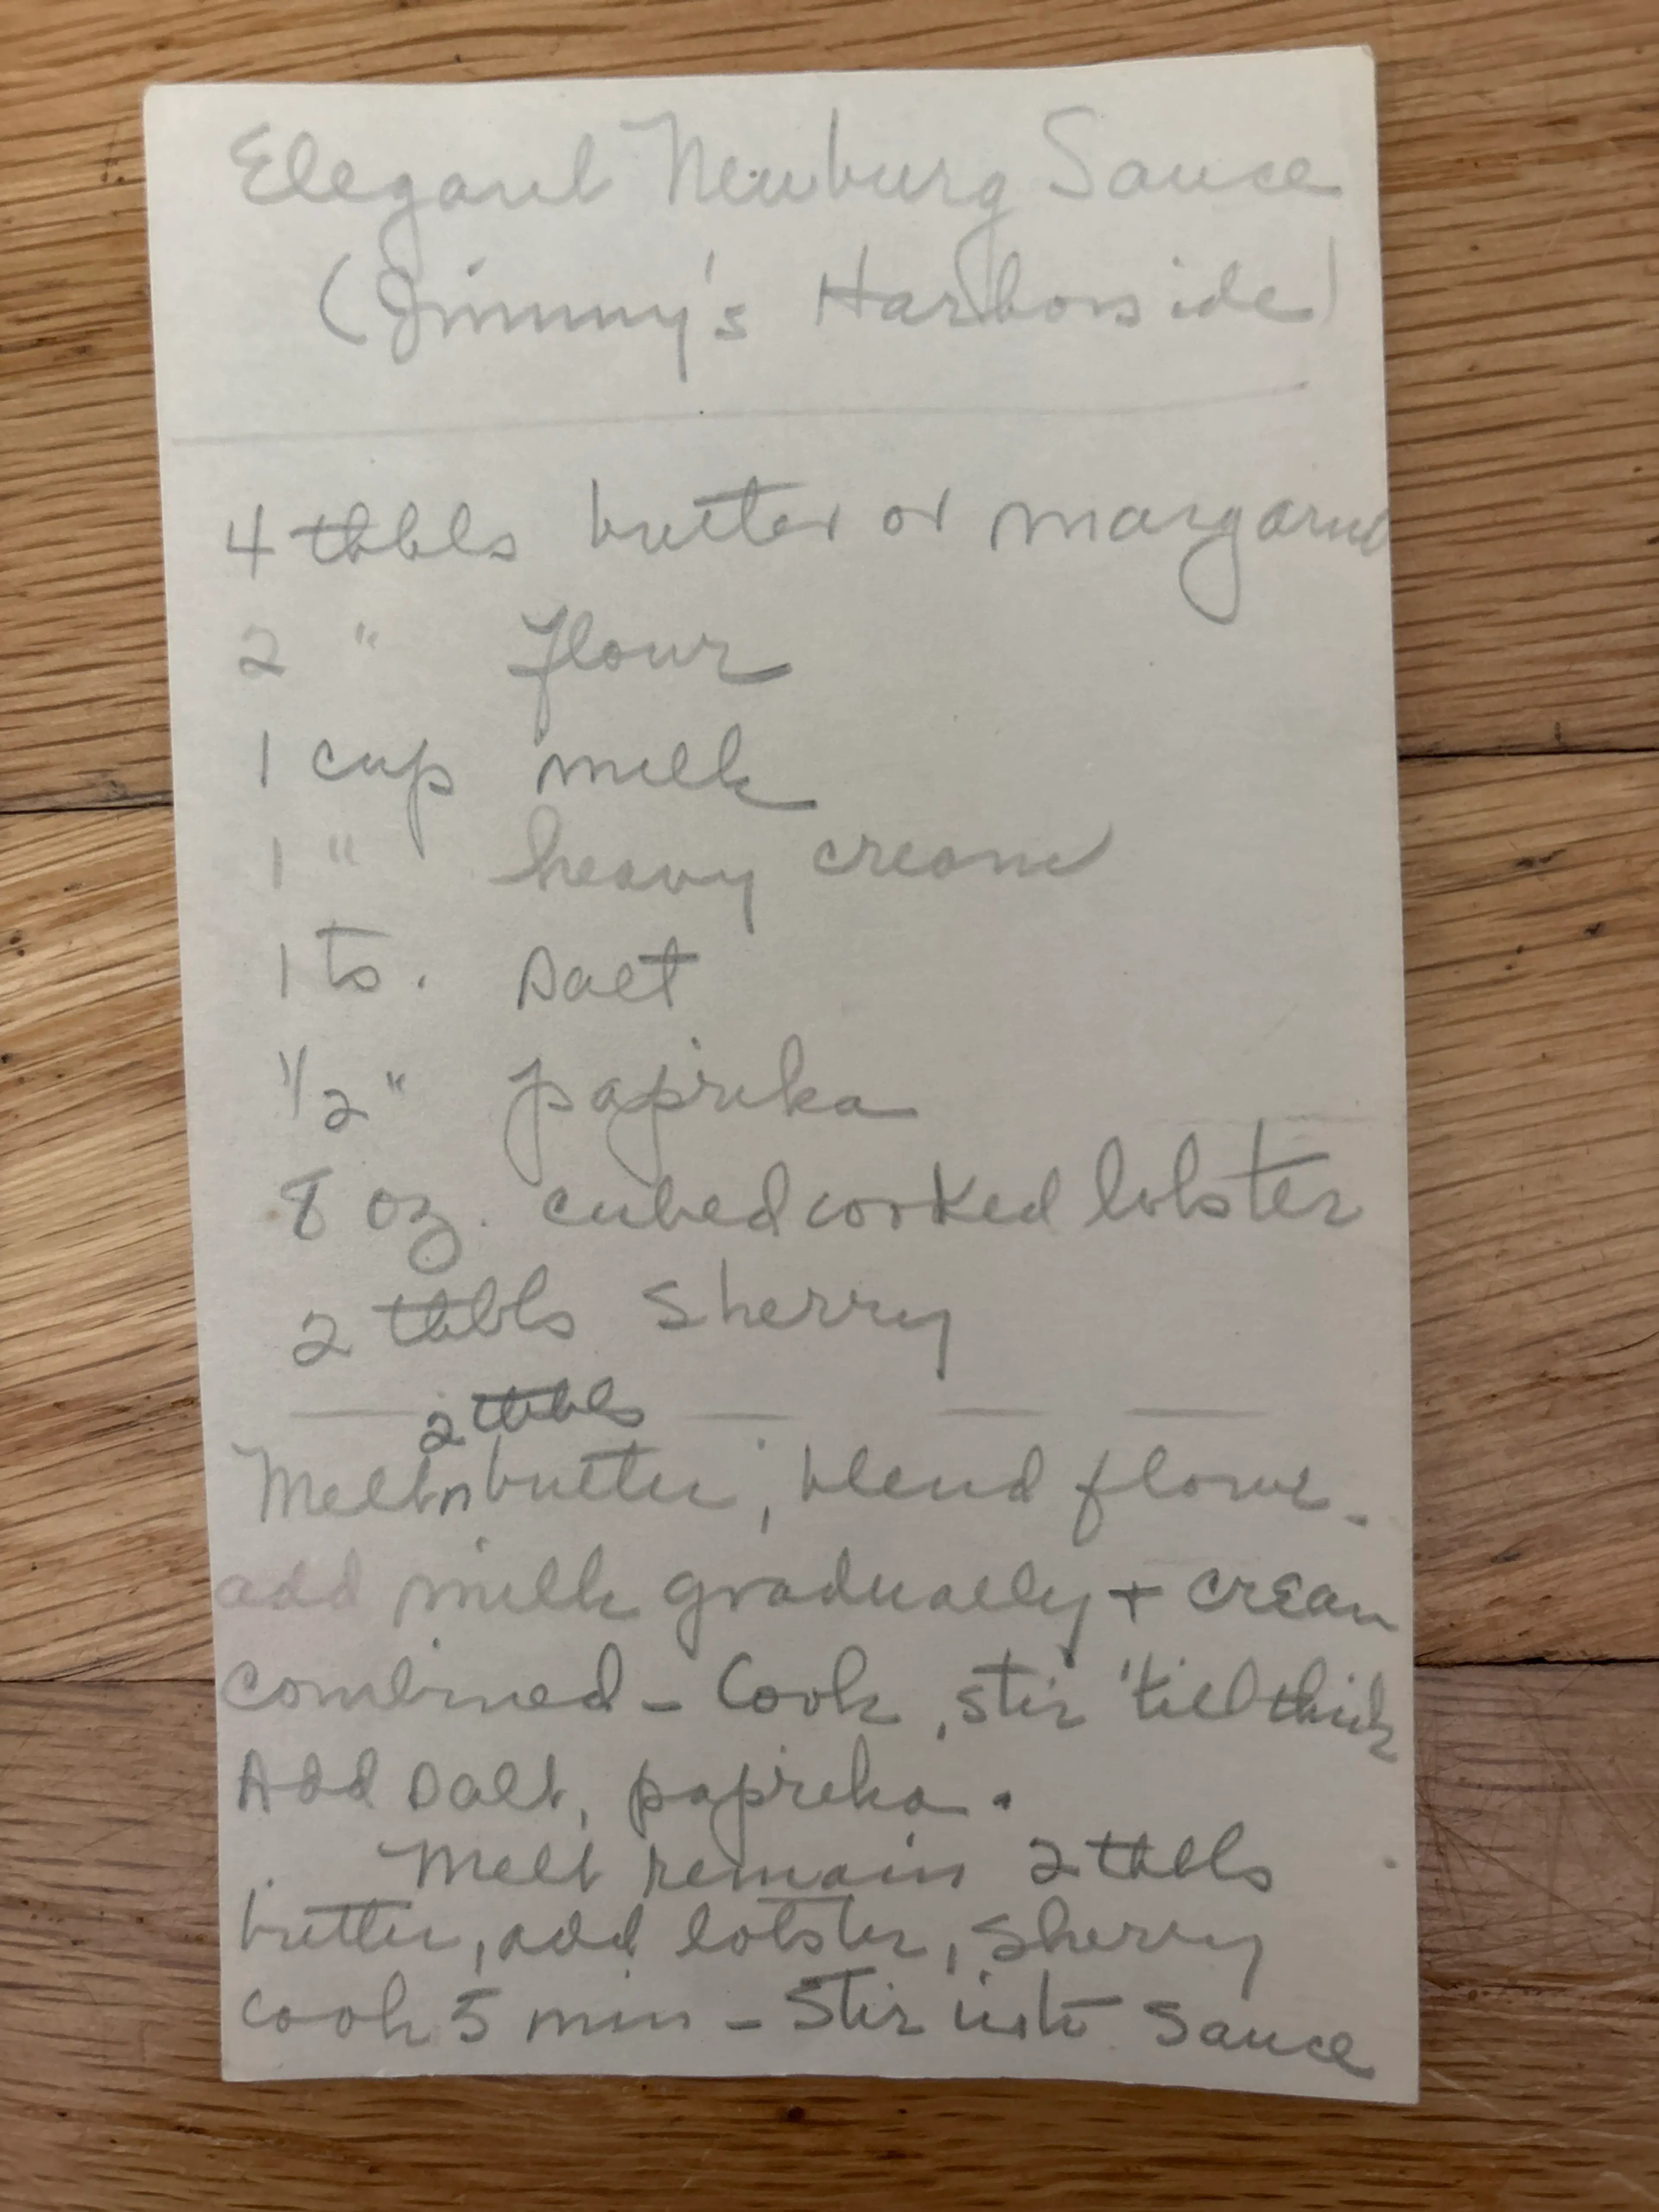 Elegant Newburg Sauce
(Jimmy's Harborside)
4 tbbls butter or margarine
2 " flour
1 cup milk
1 " heavy cream
1 ts. salt
1/2 " paprika
8 oz. cubed cooked lobster
2 tbbls sherry
2 tbbls
Melt butter, blend flour.
add milk gradually + cream
combined - Cook, stir 'til thick
Add salt, paprika.
Melt remain 2 tbbls
butter, add lobster, sherry
cook 5 min - Stir into sauce